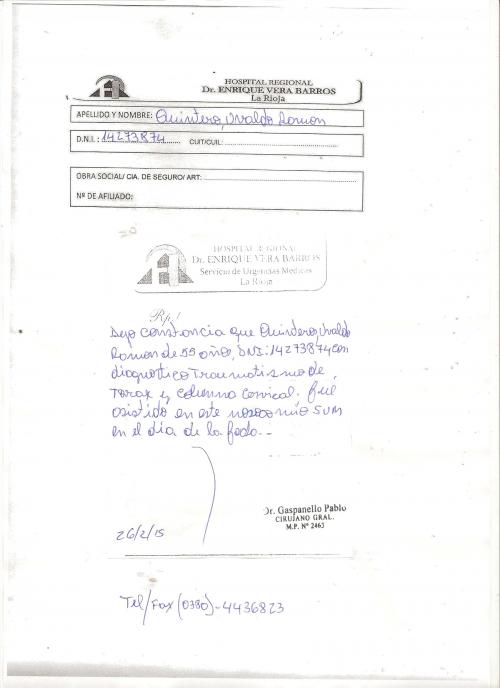 HOSPITAL REGIONAL
Dr. ENRIQUE VERA BARROS
La Rioja
APELLIDO Y NOMBRE: Quintero, Uvaldo Ramon
D.N.I.: 14273874 CUIT/CUIL:
OBRA SOCIAL/ CIA. DE SEGURO/ ART:
Nº DE AFILIADO:
HOSPITAL REGIONAL
Dr. ENRIQUE VERA BARROS
Servicio de Urgencias Medicas
La Rioja
Rp./
Dejo constancia que Quintero, Uvaldo
Ramon de 55 años, DNI: 14273874 con
diagnostico Traumatismo de
Torax y columna cervical. fue
asistido en este nosocomio SUM
en el dia de la fecha.-
Dr. Gaspanello Pablo
CIRUJANO GRAL.
M.P. Nº 2463
26/2/15
Tel/Fax (0380)-4436823